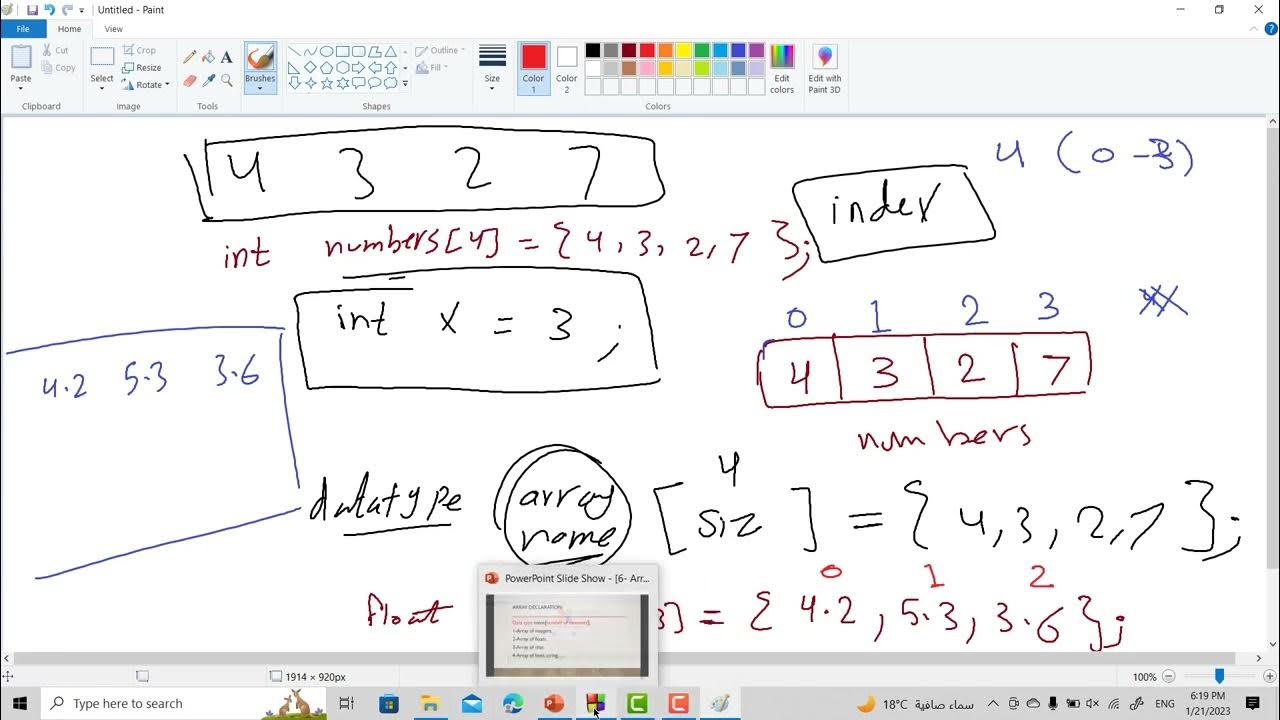 Untitled - Paint
File Home View
Paste Cut Copy Clipboard
Select Crop Resize Rotate Image
Tools
Brushes
Shapes Outline Fill
Size
Color 1 Color 2 Colors
Edit colors
Edit with Paint 3D
4 3 2 7
4 (0 -3)
index
int numbers[4] = {4, 3, 2, 7 };
int x = 3 ;
0 1 2 3
4 3 2 7
numbers
4.2 5.3 3.6
4
datatype array name [ siz ] = { 4, 3, 2, 7 };
0 1 2
float 3] = { 4.2, 5.3, 3.6 };
PowerPoint Slide Show - [6- Arr...
ARRAY DECLARATION
Data type name[number of elements];
1-Array of integers.
2-Array of floats.
3-Array of char.
1914 × 920px
100%
Type here to search
18°C سماء صافية
6:19 PM
1/21/2023